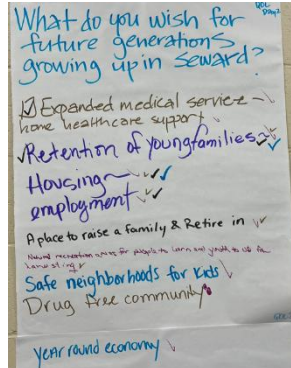 QOL
What do you wish for
future generations
growing up in Seward?
Expanded medical service -
home healthcare support
Retention of young families
Housing
employment
A place to raise a family & Retire in
Natural recreation areas for people to learn and youth to use for
harvesting
Safe neighborhoods for kids
Drug free community
year round economy